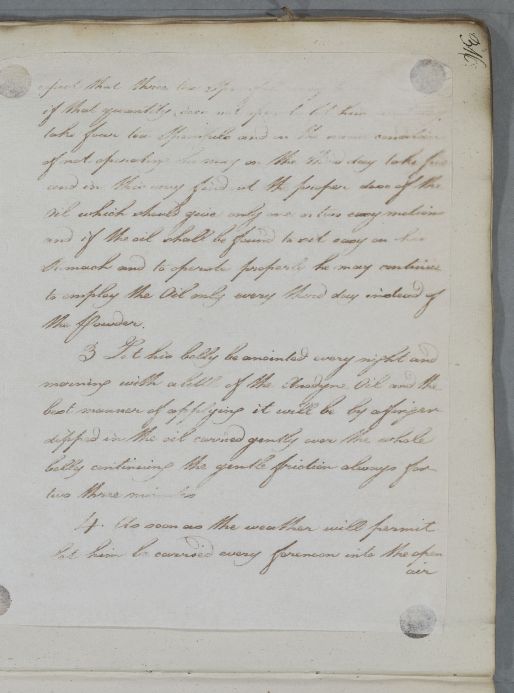 expect that three tea
if that quantity does not operate let him
take four tea Spoonfuls and in the same
of not operating he may on the third day take five
and in this way find out the proper dose of the
Oil which should give only one or two easy motions
and if the oil shall be found to sit easy on his
Stomach and to operate properly he may continue
to employ the Oil only every third day instead of
the Powder.
3 Let his belly be anointed every night and
morning with a little of the Anodyne Oil and the
best manner of applying it will be by a finger
dipped in the oil carried gently over the whole
belly continuing the gentle friction always for
two three minutes
4. As soon as the weather will permit
let him be carried every forenoon into the open
air